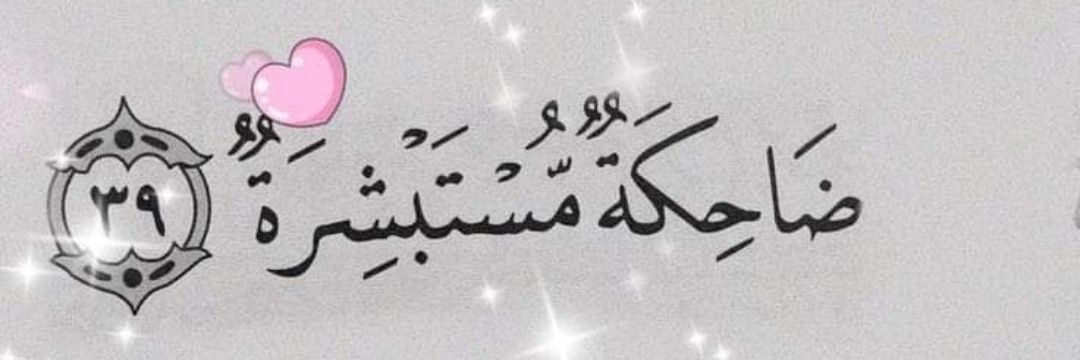 ضَاحِكَةٌ مُّسْتَبْشِرَةٌ ٣٩